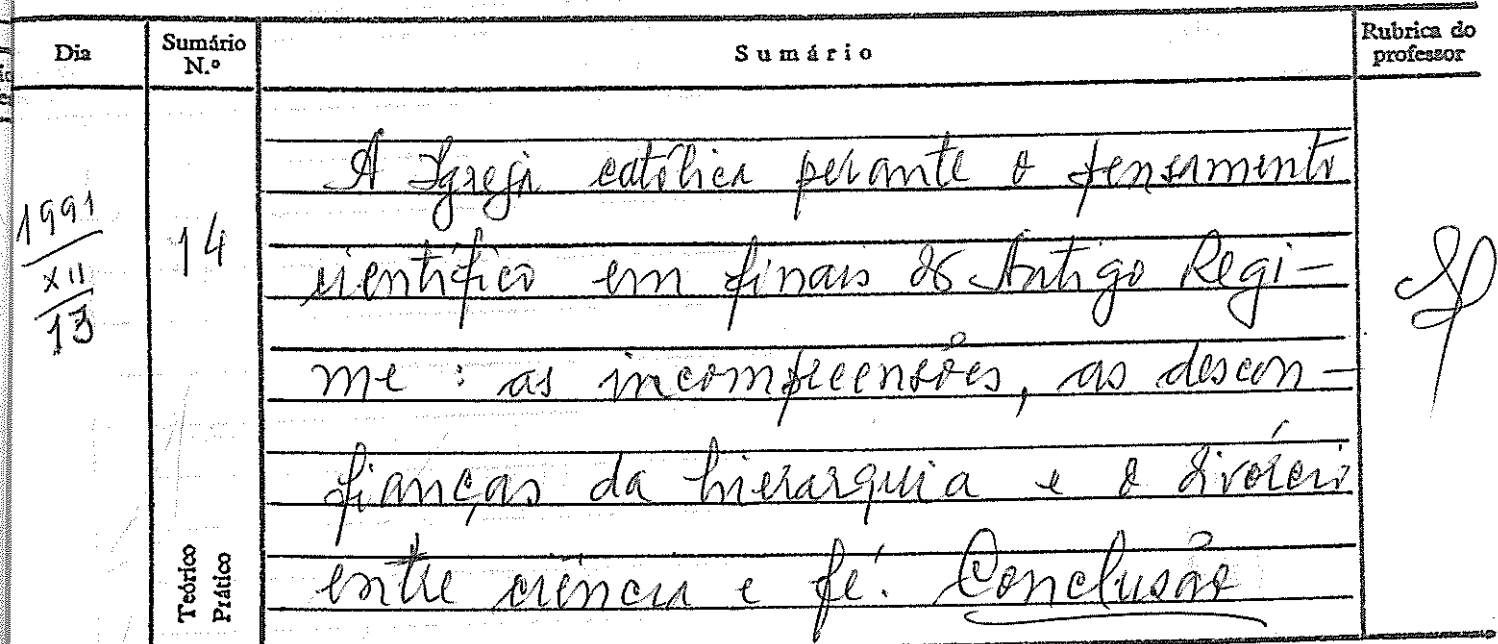 Dia
Sumário N.º
Sumário
Rubrica do professor
1991
XII
13
14
A Igreja católica perante o pensamento
científico em finais do Antigo Regi-
me : as incompreensões, as descon-
fianças da hierarquia e o divórcio
entre ciência e fé. Conclusão
Teórico
Prático